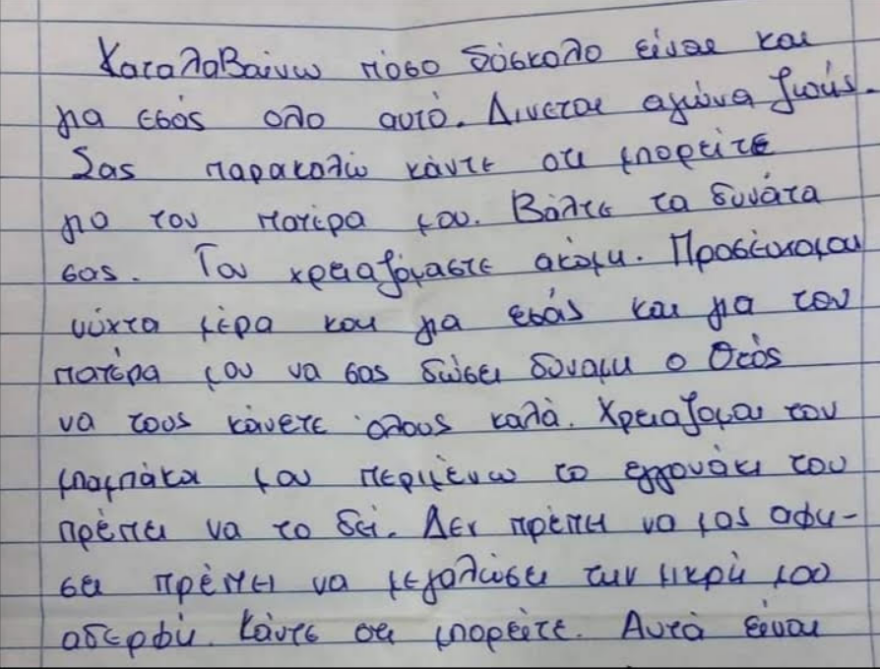 Καταλαβαίνω πόσο δύσκολο είναι και
για εσάς ολο αυτό. Δινεται αγώνα ζωής.
Σας παρακαλώ κάντε οτι μπορείτε
για τον πατέρα μου. Βάλτε τα δυνάτα
σας. Τον χρειαζόμαστε ακόμη. Προσέυχομαι
νύχτα μέρα και για εσάς και για τον
πατέρα μου να σας δώσει δυναμη ο Θεός
να τους κάνετε όλους καλά. Χρειαζομαι τον
μπαμπάκα μου περιμένω το εγγονάκι του
πρέπει να το δει. Δεν πρέπει να μας αφη-
σει πρέπει να μεγαλώσει την μικρή μου
αδερφή. Κάντε οτι μπορείτε. Αυτά είναι